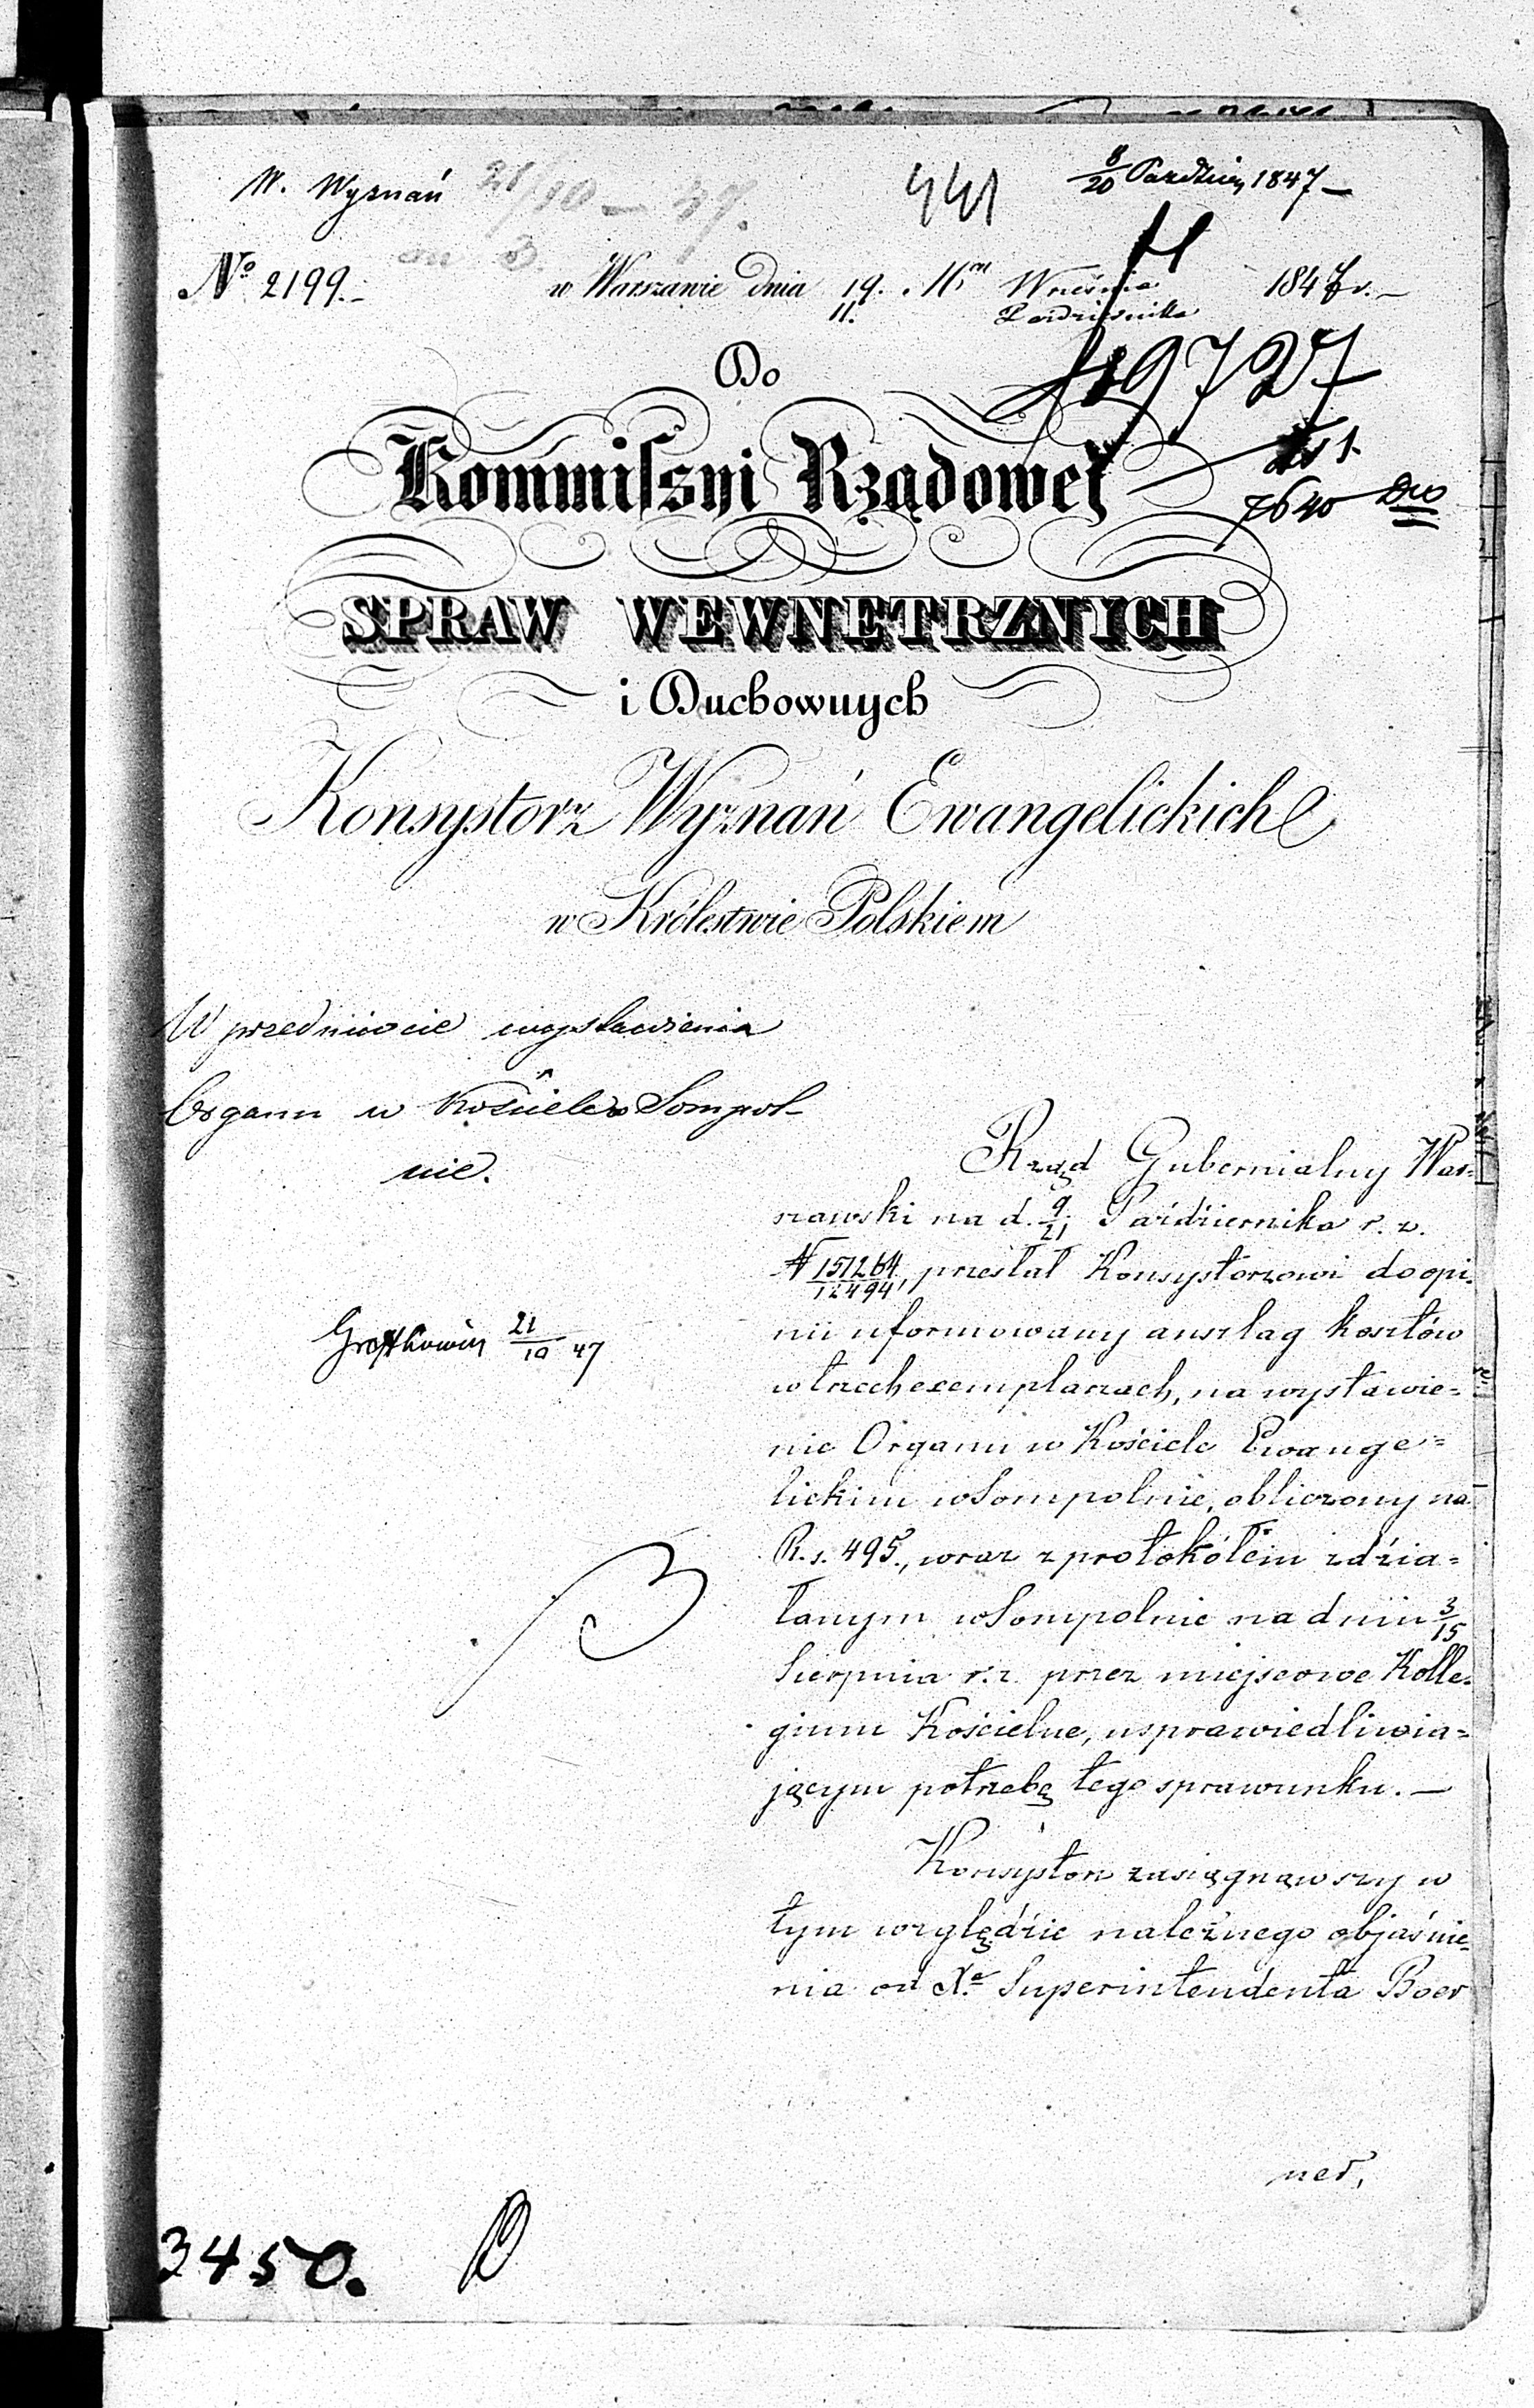 W. Wyznań 21/10 – 47. 441 8/20 Paździer 1847 –
No 2199. – w Warszawie dnia 19. Września 1847 r. –
11. Października
19727
Do
Kommissyi Rządowej
7640
SPRAW WEWNĘTRZNYCH
i Duchownych
Konsystorz Wyznań Ewangelickich
w Królestwie Polskiem
W przedmiocie wystawienia
Organu w Kościele w Sompol-
nie.
Rząd Gubernialny War-
szawski na d. 9/21 Października r. z.
N 151264/12494, przesłał Konsystorzowi do opi-
nii uformowany anszlag kosztów
w trzech exemplarzach, na wystawie=
nie Organu w Kościele Ewange=
lickim w Sompolnie, obliczony na
R. s. 495., wraz z protokółem zdzia=
łanym w Sompolnie na dniu 3/15
Sierpnia r. z. przez miejscowe Kolle-
gium Kościelne, usprawiedliwia=
jącym potrzebę tego sprawunku. –
Konsystorz zasiągnąwszy w
tym względzie należnego objaśnie-
nia od Xa Superintendenta Boer
ner,
21/10 47
3450.